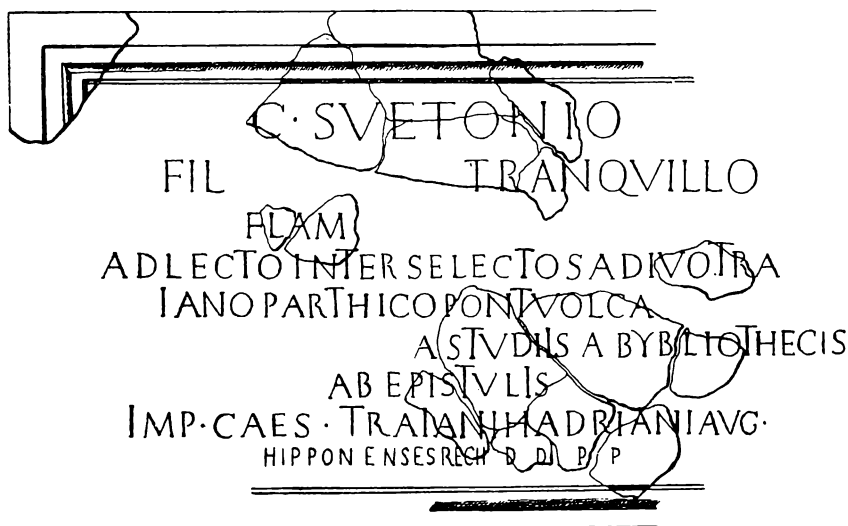 C · SVETONIO
FIL TRANQVILLO
FLAM
ADLECTO INTER SELECTOS A DIVO TRA
IANO PARTHICO PONT VOLCA
A STVDIIS A BYBLIOTHECIS
AB EPISTVLIS
IMP · CAES · TRAIANI HADRIANI AVG ·
HIPPONENSES REGII D D P P